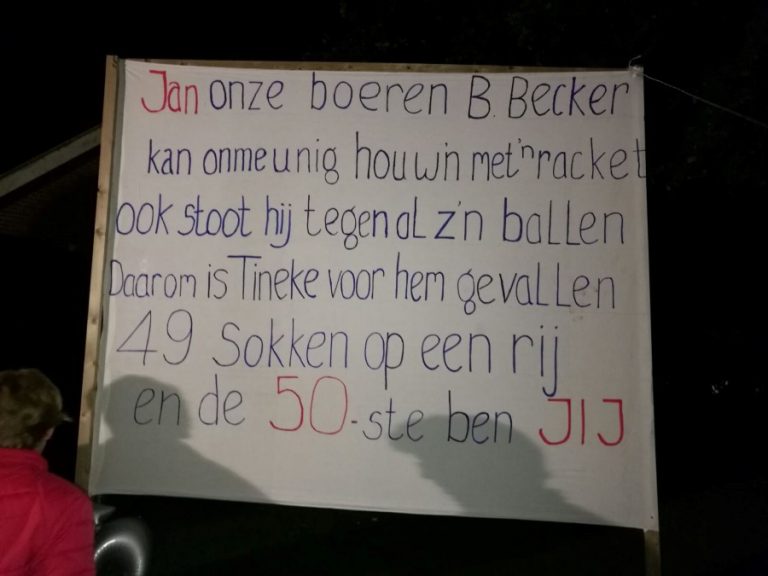 Jan onze boeren B. Becker
kan onmeunig houw'n met 'n racket
ook stoot hij tegen al z'n ballen
Daarom is Tineke voor hem gevallen
49 sokken op een rij
en de 50-ste ben JIJ